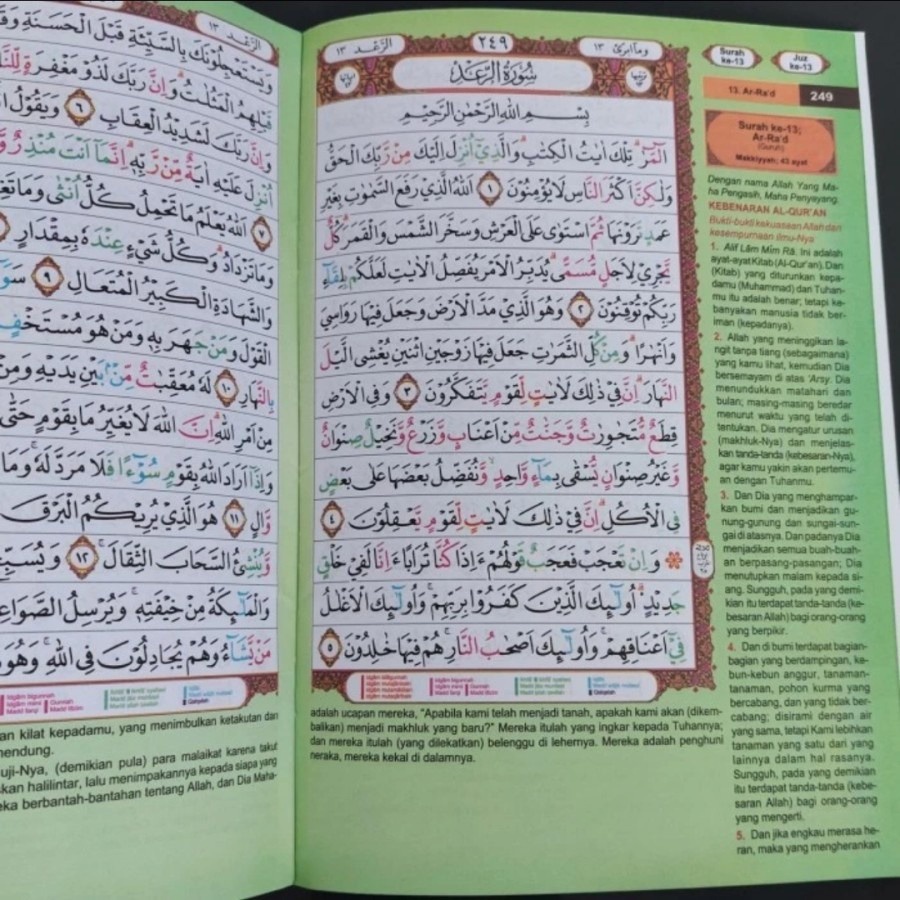 الرَّعْد ١٣
٢٤٩
وَمَآ اُبَرِّئُ ١٣
سُوْرَةُ الرَّعْدِ
بِسْمِ اللّٰهِ الرَّحْمٰنِ الرَّحِيْمِ
الۤمّۤرٰۗ تِلْكَ اٰيٰتُ الْكِتٰبِۗ وَالَّذِيْٓ اُنْزِلَ اِلَيْكَ مِنْ رَّبِّكَ الْحَقُّ
وَلٰكِنَّ اَكْثَرَ النَّاسِ لَا يُؤْمِنُوْنَ ١ اَللّٰهُ الَّذِيْ رَفَعَ السَّمٰوٰتِ بِغَيْرِ
عَمَدٍ تَرَوْنَهَا ثُمَّ اسْتَوٰى عَلَى الْعَرْشِ وَسَخَّرَ الشَّمْسَ وَالْقَمَرَۗ كُلٌّ
يَّجْرِيْ لِاَجَلٍ مُّسَمًّىۗ يُدَبِّرُ الْاَمْرَ يُفَصِّلُ الْاٰيٰتِ لَعَلَّكُمْ بِلِقَاۤءِ
رَبِّكُمْ تُوْقِنُوْنَ ٢ وَهُوَ الَّذِيْ مَدَّ الْاَرْضَ وَجَعَلَ فِيْهَا رَوَاسِيَ
وَاَنْهٰرًاۗ وَمِنْ كُلِّ الثَّمَرٰتِ جَعَلَ فِيْهَا زَوْجَيْنِ اثْنَيْنِ يُغْشِى الَّيْلَ
النَّهَارَۗ اِنَّ فِيْ ذٰلِكَ لَاٰيٰتٍ لِّقَوْمٍ يَّتَفَكَّرُوْنَ ٣ وَفِى الْاَرْضِ
قِطَعٌ مُّتَجٰوِرٰتٌ وَّجَنّٰتٌ مِّنْ اَعْنَابٍ وَّزَرْعٌ وَّنَخِيْلٌ صِنْوَانٌ
وَّغَيْرُ صِنْوَانٍ يُّسْقٰى بِمَاۤءٍ وَّاحِدٍۙ وَّنُفَضِّلُ بَعْضَهَا عَلٰى بَعْضٍ
فِى الْاُكُلِۗ اِنَّ فِيْ ذٰلِكَ لَاٰيٰتٍ لِّقَوْمٍ يَّعْقِلُوْنَ ٤
وَاِنْ تَعْجَبْ فَعَجَبٌ قَوْلُهُمْ ءَاِذَا كُنَّا تُرَابًا ءَاِنَّا لَفِيْ خَلْقٍ
جَدِيْدٍۗ اُولٰۤىِٕكَ الَّذِيْنَ كَفَرُوْا بِرَبِّهِمْۚ وَاُولٰۤىِٕكَ الْاَغْلٰلُ
فِيْٓ اَعْنَاقِهِمْۚ وَاُولٰۤىِٕكَ اَصْحٰبُ النَّارِۚ هُمْ فِيْهَا خٰلِدُوْنَ ٥
adalah ucapan mereka, "Apabila kami telah menjadi tanah, apakah kami akan (dikem-
balikan) menjadi makhluk yang baru?" Mereka itulah yang ingkar kepada Tuhannya;
dan mereka itulah (yang dilekatkan) belenggu di lehernya. Mereka adalah penghuni
neraka, mereka kekal di dalamnya.
Surah ke-13
Juz ke-13
13. Ar-Ra'd
249
Surah ke-13;
Ar-Ra'd
(Guruh)
Makkiyyah; 43 ayat
Dengan nama Allah Yang Ma-
ha Pengasih, Maha Penyayang.
KEBENARAN AL-QUR'AN
Bukti-bukti kekuasaan Allah dan
kesempurnaan ilmu-Nya
1. Alif Lām Mīm Rā. Ini adalah
ayat-ayat Kitab (Al-Qur'an). Dan
(Kitab) yang diturunkan kepa-
damu (Muhammad) dan Tuhan-
mu itu adalah benar; tetapi ke-
banyakan manusia tidak ber-
iman (kepadanya).
2. Allah yang meninggikan la-
ngit tanpa tiang (sebagaimana)
yang kamu lihat, kemudian Dia
bersemayam di atas 'Arsy. Dia
menundukkan matahari dan
bulan; masing-masing beredar
menurut waktu yang telah di-
tentukan. Dia mengatur urusan
(makhluk-Nya) dan menjelas-
kan tanda-tanda (kebesaran-Nya),
agar kamu yakin akan pertemu-
an dengan Tuhanmu.
3. Dan Dia yang menghampar-
kan bumi dan menjadikan gu-
nung-gunung dan sungai-sun-
gai di atasnya. Dan padanya Dia
menjadikan semua buah-buah-
an berpasang-pasangan; Dia
menutupkan malam kepada si-
ang. Sungguh, pada yang demi-
kian itu terdapat tanda-tanda (ke-
besaran Allah) bagi orang-orang
yang berpikir.
4. Dan di bumi terdapat bagian-
bagian yang berdampingan, ke-
bun-kebun anggur, tanaman-
tanaman, pohon kurma yang
bercabang, dan yang tidak ber-
cabang; disirami dengan air
yang sama, tetapi Kami lebihkan
tanaman yang satu dari yang
lainnya dalam hal rasanya.
Sungguh, pada yang demikian
itu terdapat tanda-tanda (kebe-
saran Allah) bagi orang-orang
yang mengerti.
5. Dan jika engkau merasa he-
ran, maka yang mengherankan
الرَّعْد ١٣
وَيَسْتَعْجِلُوْنَكَ بِالسَّيِّئَةِ قَبْلَ الْحَسَنَةِ
قَبْلِهِمُ الْمَثُلٰتُۗ وَاِنَّ رَبَّكَ لَذُوْ مَغْفِرَةٍ
وَاِنَّ رَبَّكَ لَشَدِيْدُ الْعِقَابِ ٦ وَيَقُوْلُ
اُنْزِلَ عَلَيْهِ اٰيَةٌ مِّنْ رَّبِّهٖۗ اِنَّمَآ اَنْتَ مُنْذِرٌ
٧ اَللّٰهُ يَعْلَمُ مَا تَحْمِلُ كُلُّ اُنْثٰى وَمَا
وَمَا تَزْدَادُۗ وَكُلُّ شَيْءٍ عِنْدَهٗ بِمِقْدَارٍ
وَالشَّهَادَةِ الْكَبِيْرُ الْمُتَعَالِ ٩
الْقَوْلَ وَمَنْ جَهَرَ بِهٖ وَمَنْ هُوَ
بِالنَّهَارِ ١٠ لَهٗ مُعَقِّبٰتٌ مِّنْۢ بَيْنِ يَدَيْهِ
مِنْ اَمْرِ اللّٰهِۗ اِنَّ اللّٰهَ لَا يُغَيِّرُ مَا بِقَوْمٍ حَتّٰى
وَاِذَآ اَرَادَ اللّٰهُ بِقَوْمٍ سُوْۤءًا فَلَا مَرَدَّ لَهٗۚ وَمَا
وَّالٍ ١١ هُوَ الَّذِيْ يُرِيْكُمُ الْبَرْقَ
وَّيُنْشِئُ السَّحَابَ الثِّقَالَۚ ١٢
وَالْمَلٰۤىِٕكَةُ مِنْ خِيْفَتِهٖۚ وَيُرْسِلُ
مَنْ يَّشَاۤءُ وَهُمْ يُجَادِلُوْنَ فِى اللّٰهِۚ وَهُوَ
an kilat kepadamu, yang menimbulkan ketakutan dan
mendung.
uji-Nya, (demikian pula) para malaikat karena takut
skan halilintar, lalu menimpakannya kepada siapa yang
eka berbantah-bantahan tentang Allah, dan Dia Maha-